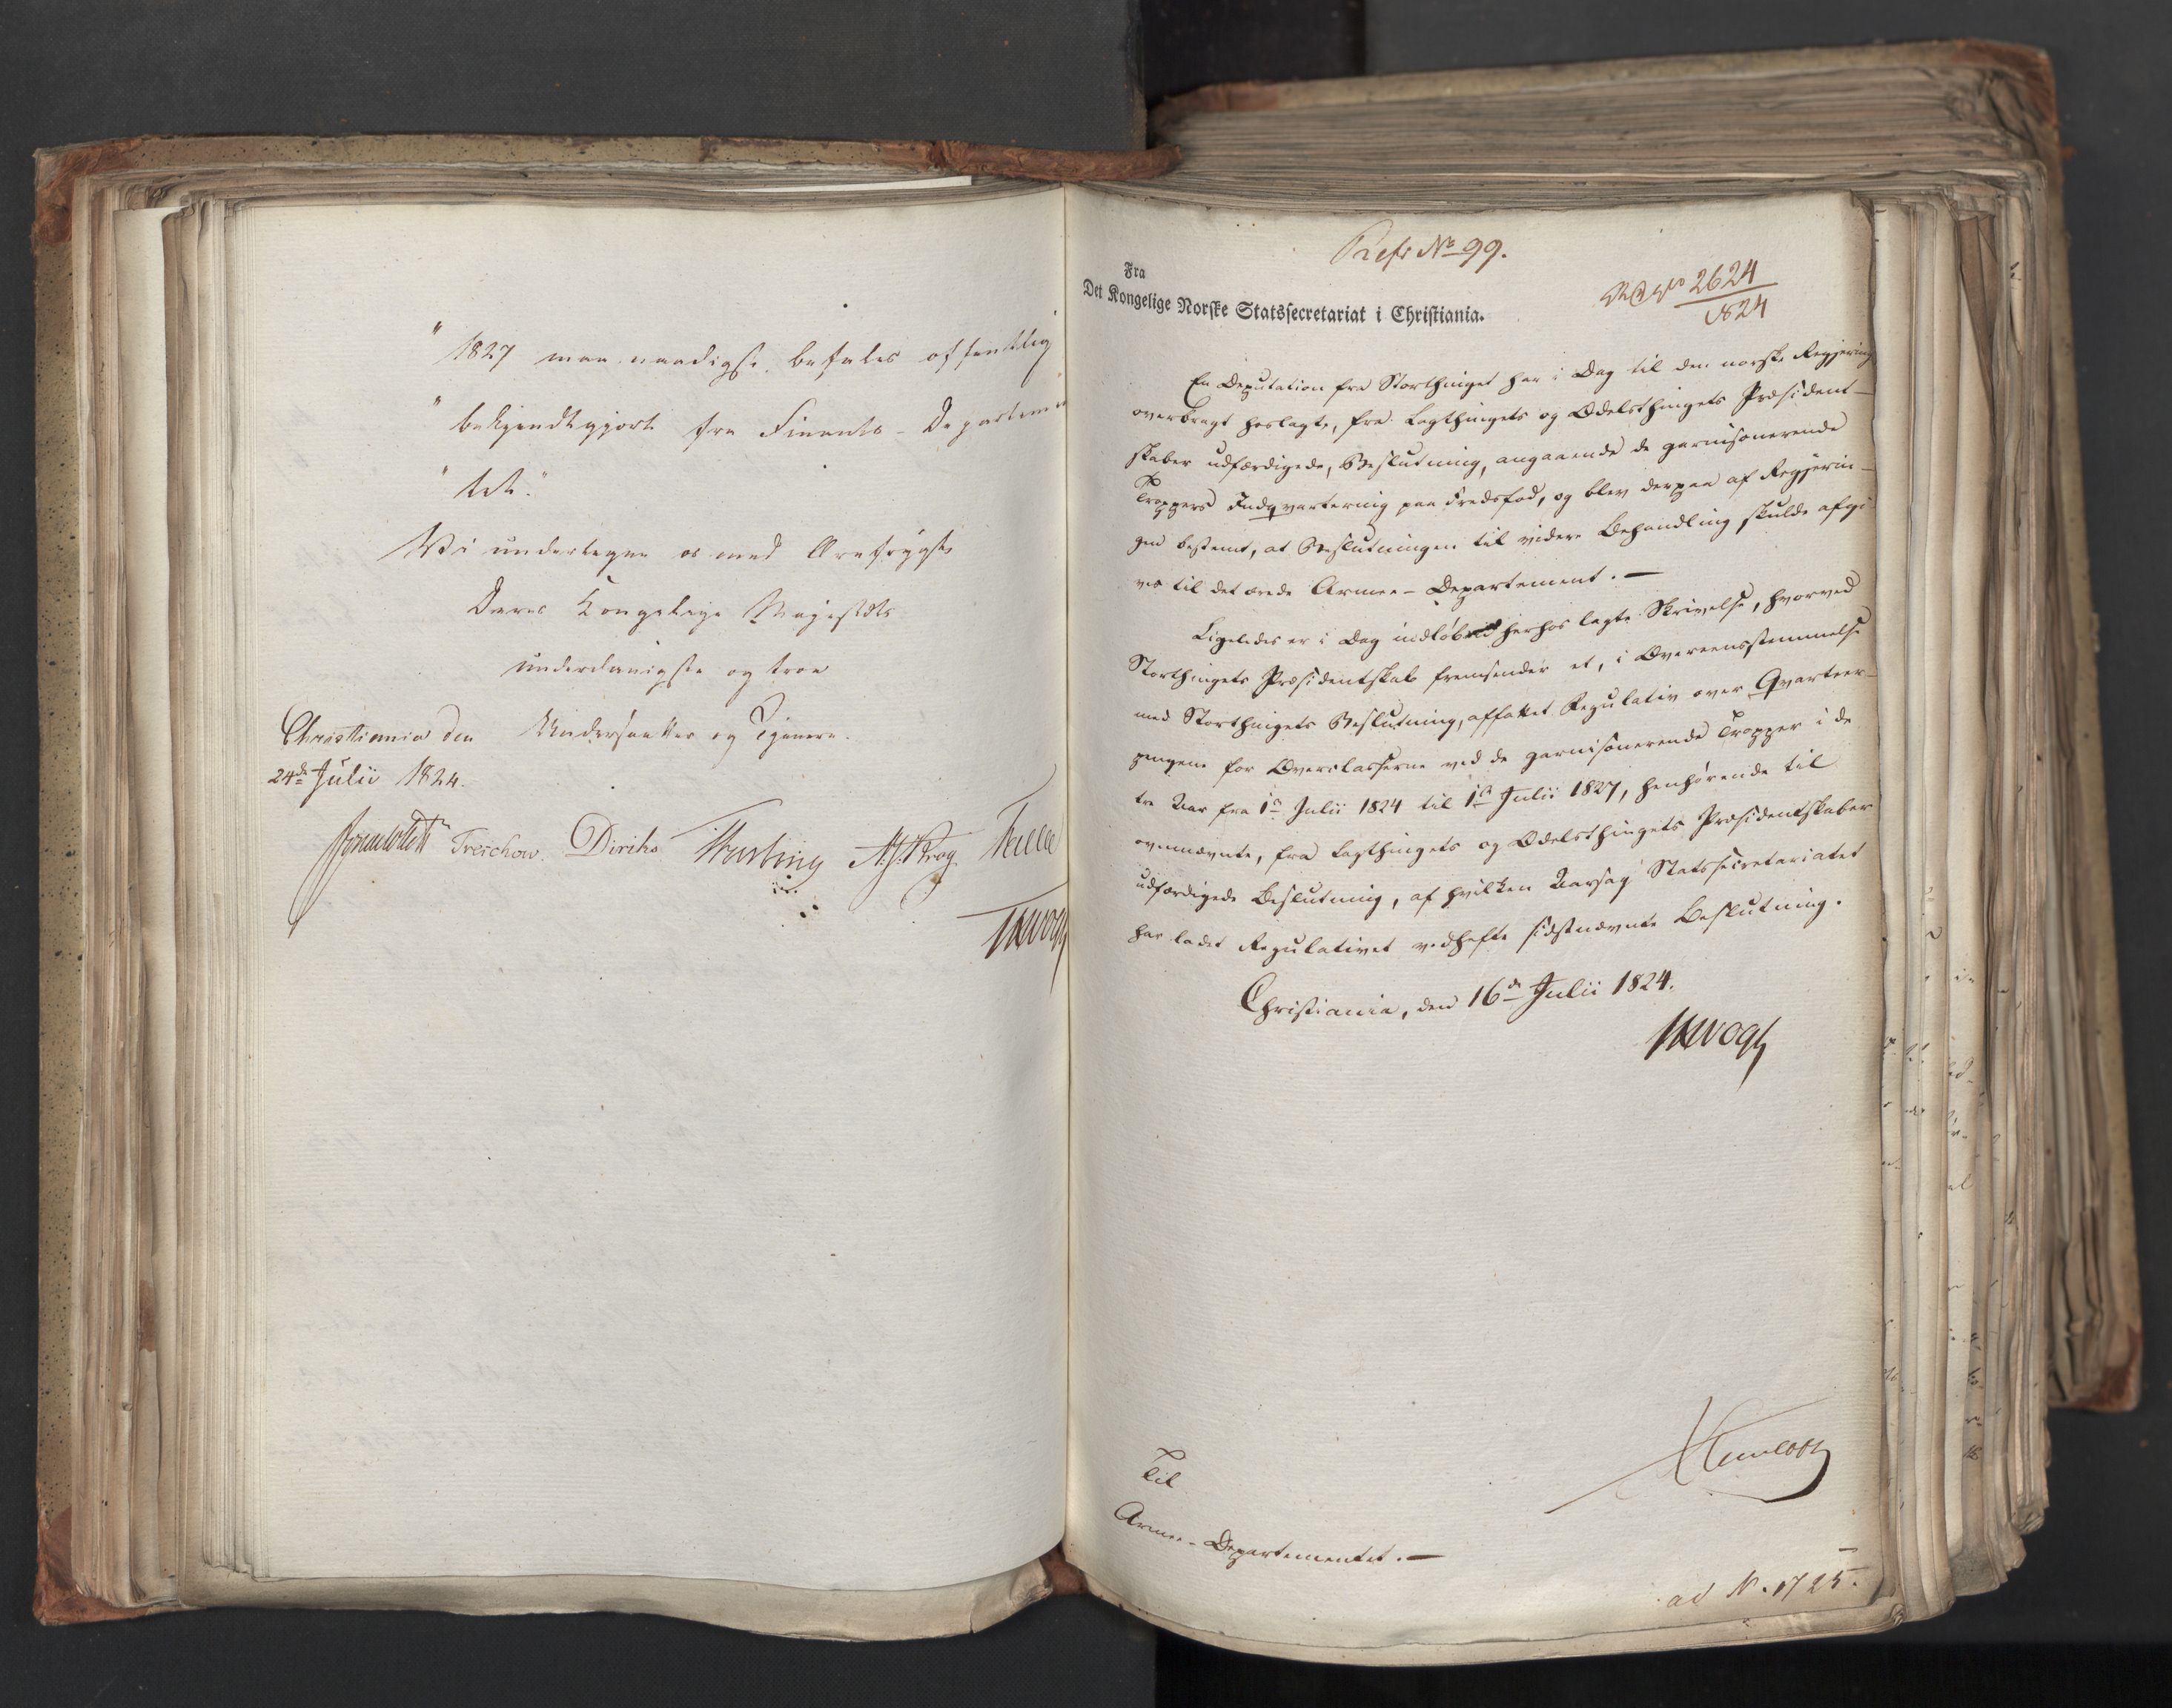 " 1827 maa naadigst befales offentlig
" bekjendtgjort fra Finants-Departemen
" tet."
Vi undertegne os med Ærefrygt
Deres Kongelige Majestæts
underdanigste og troe
Christiania den Undersaatter og Tjenere.
24de Julii 1824.
Treschow. Diriks A. J. Krog
JHVogt
No 99.
Fra
Det Kongelige Norske Statssecretariat i Christiania.
2624
1824
En Deputation fra Storthinget har i Dag til den norske Regjering
overbragt hoslagte, fra Lagthingets og Odelsthingets Præsident-
skaber udfærdigede, Beslutning, angaaende de garnisonerende
Troppers Indqvartering paa Fredsfod, og blev derpaa af Regjerin-
gen bestemt, at Beslutningen til videre Behandling skulde afgi-
ves til det ærede Armee-Departement. —
Ligeledes er i Dag indløbet herhos lagte Skrivelse, hvorved
Storthingets Præsidentskab fremsender et, i Overeensstemmelse
med Storthingets Beslutning, affattet Regulativ over Qvarteer-
pengene for Overclasserne ved de garnisonerende Tropper i de
tre Aar fra 1ste Julii 1824 til 1ste Julii 1827, henhørende til
ovennævnte, fra Lagthingets og Odelsthingets Præsidentskaber
udfærdigede Beslutning, af hvilken Aarsag Statssecretariatet
har ladet Regulativet vedhefte sidstnævnte Beslutning.
Christiania, den 16de Julii 1824.
JHVogt
Til
Armee-Departementet. —
ad N. 1725.